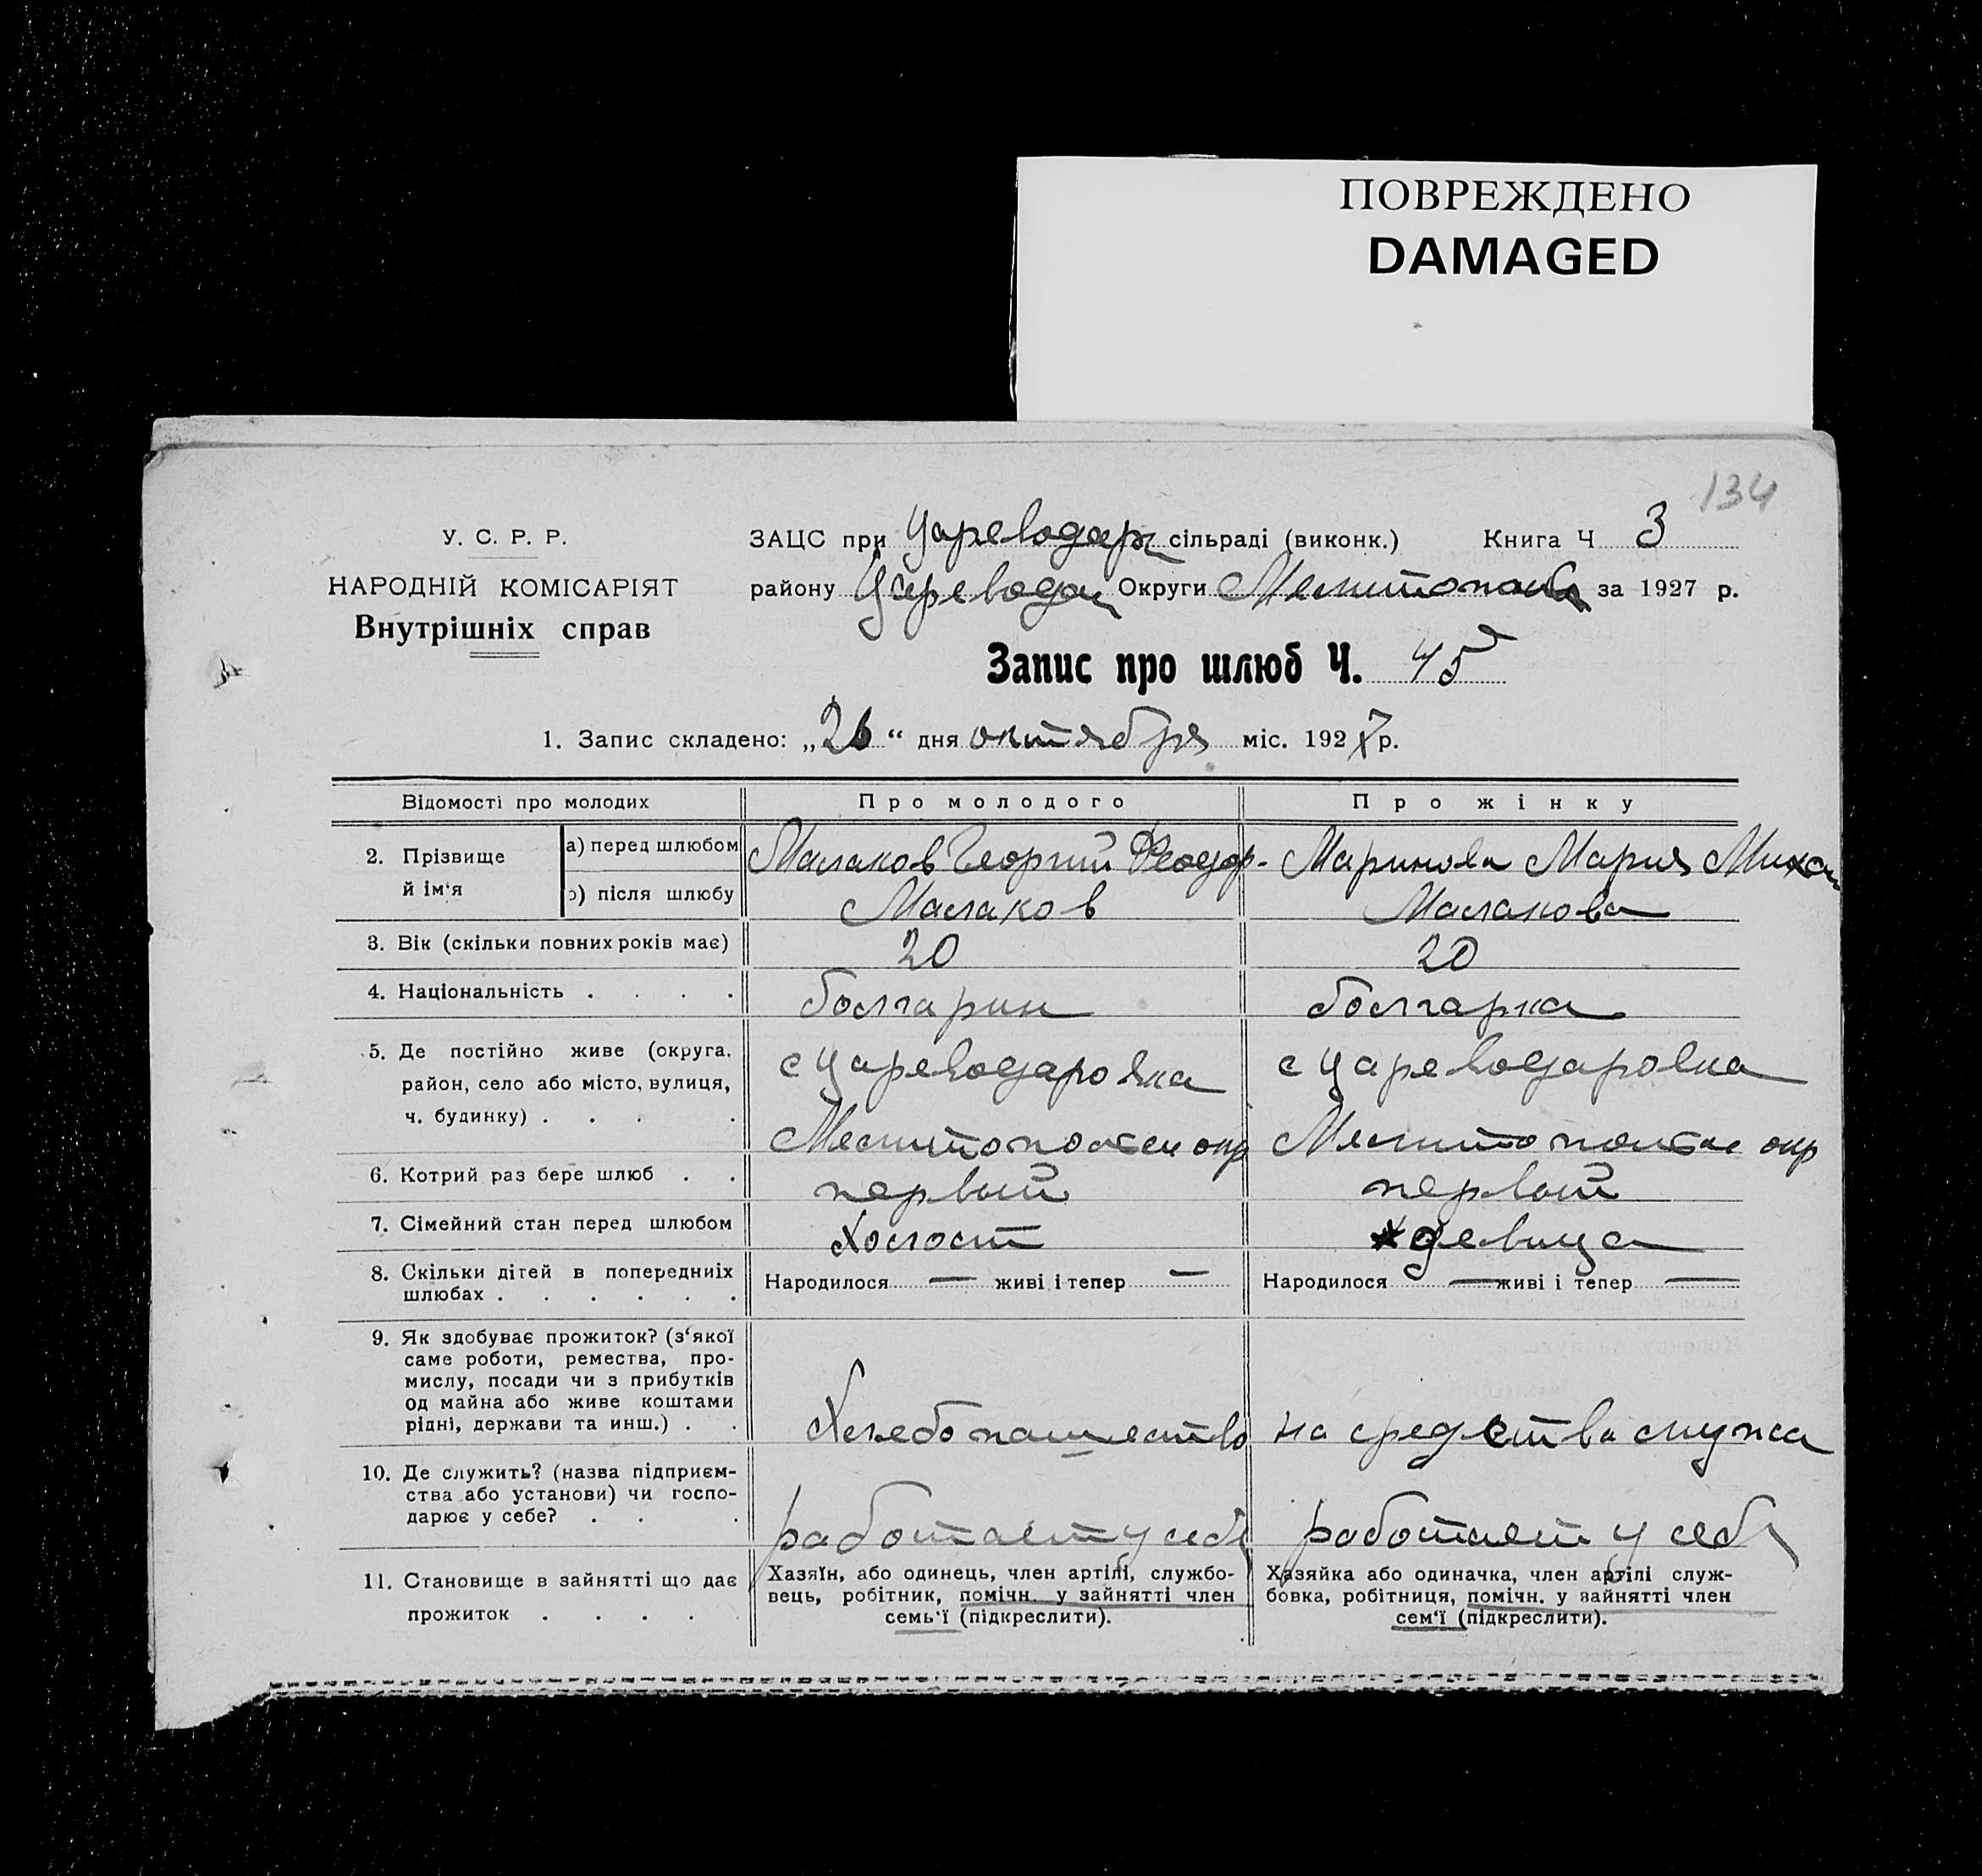 ПОВРЕЖДЕНО
DAMAGED
134
У. С. Р. Р.
НАРОДНІЙ КОМІСАРІЯТ
Внутрішніх справ
ЗАЦС при Цареводар сільраді (виконк.) Книга Ч 3
району Цареводар Округи за 1927 р.
Запис про шлюб Ч. 45
1. Запис складено: „26“ дня октября міс. 1927 р.
Відомості про молодих Про молодого Про жінку
2. Прізвище й ім‘я
а) перед шлюбом Малаков Георгий Феодор- Маринова Мария Михаи
б) після шлюбу Малаков Малакова
3. Вік (скільки повних років має) 20 20
4. Національність . . . . болгарин болгарка
5. Де постійно живе (округа, с Цареводаровка с Цареводаровка
район, село або місто, вулиця,
ч. будинку) . . . . Мелитопольск окр Мелитопольск окр
6. Котрий раз бере шлюб . . первый первый
7. Сімейний стан перед шлюбом Холост девица
8. Скільки дітей в попередниіх Народилося — живі і тепер — Народилося — живі і тепер —
шлюбах . . . . . .
9. Як здобуває прожиток? (з‘якої
саме роботи, ремества, про-
мислу, посади чи з прибутків
од майна або живе коштами
рідні, держави та инш.) . . Хлебопашество на средства мужа
10. Де служить? (назва підприєм-
ства або установи) чи госпо-
дарює у себе? . . . работает у себя работает у себя
11. Становище в зайнятті що дає
прожиток . . . . .
Хазяїн, або одинець, член артілі, службо-
вець, робітник, помічн. у зайнятті член
семь‘ї (підкреслити).
Хазяйка або одиначка, член артілі служ-
бовка, робітниця, помічн. у зайнятті член
сем‘ї (підкреслити).